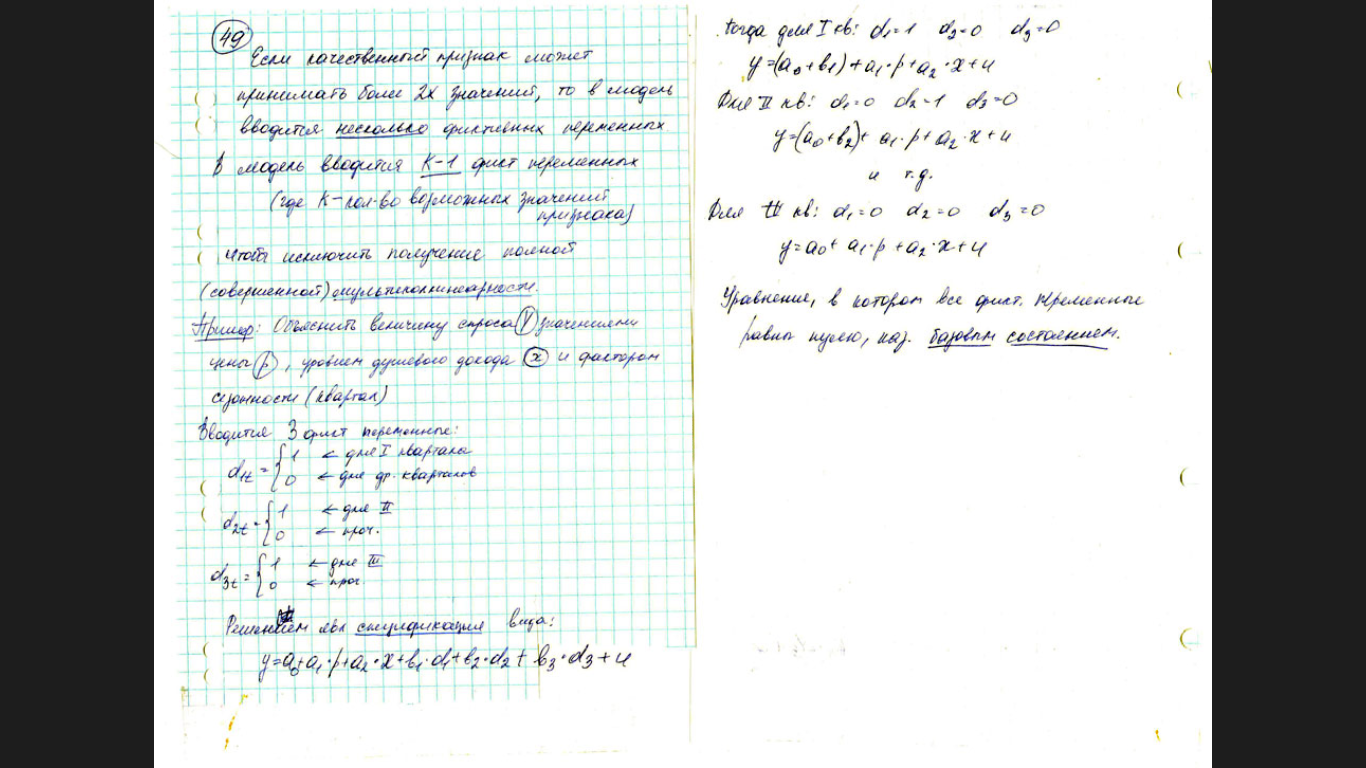 49
Если качественный признак может
принимать более 2х значений, то в модель
вводится несколько фиктивных переменных.
В модель вводится К-1 фикт переменных
(где К-кол-во возможных значений
признака)
чтобы исключить получение полной
(совершенной) мультиколлинеарности.
Пример: Объяснить величину спроса (y) значениями
цены (p), уровнем душевого дохода (x) и фактором
сезонности (квартал)
Вводится 3 фикт переменные:
d1t = { 1 ← для I квартала
0 ← для др. кварталов
d2t = { 1 ← для II
0 ← проч.
d3t = { 1 ← для III
0 ← проч
Решением явл спецификация вида:
y=a0+a1·p+a2·x+b1·d1+b2·d2+b3·d3+u
Тогда для I кв: d1=1 d2=0 d3=0
y=(a0+b1)+a1·p+a2·x+u
Для II кв: d1=0 d2=1 d3=0
y=(a0+b2)+a1·p+a2·x+u
и т.д.
Для кв: d1=0 d2=0 d3=0
y=a0+a1·p+a2·x+u
Уравнение, в котором все фикт. переменные
равны нулю, наз. базовым состоянием.